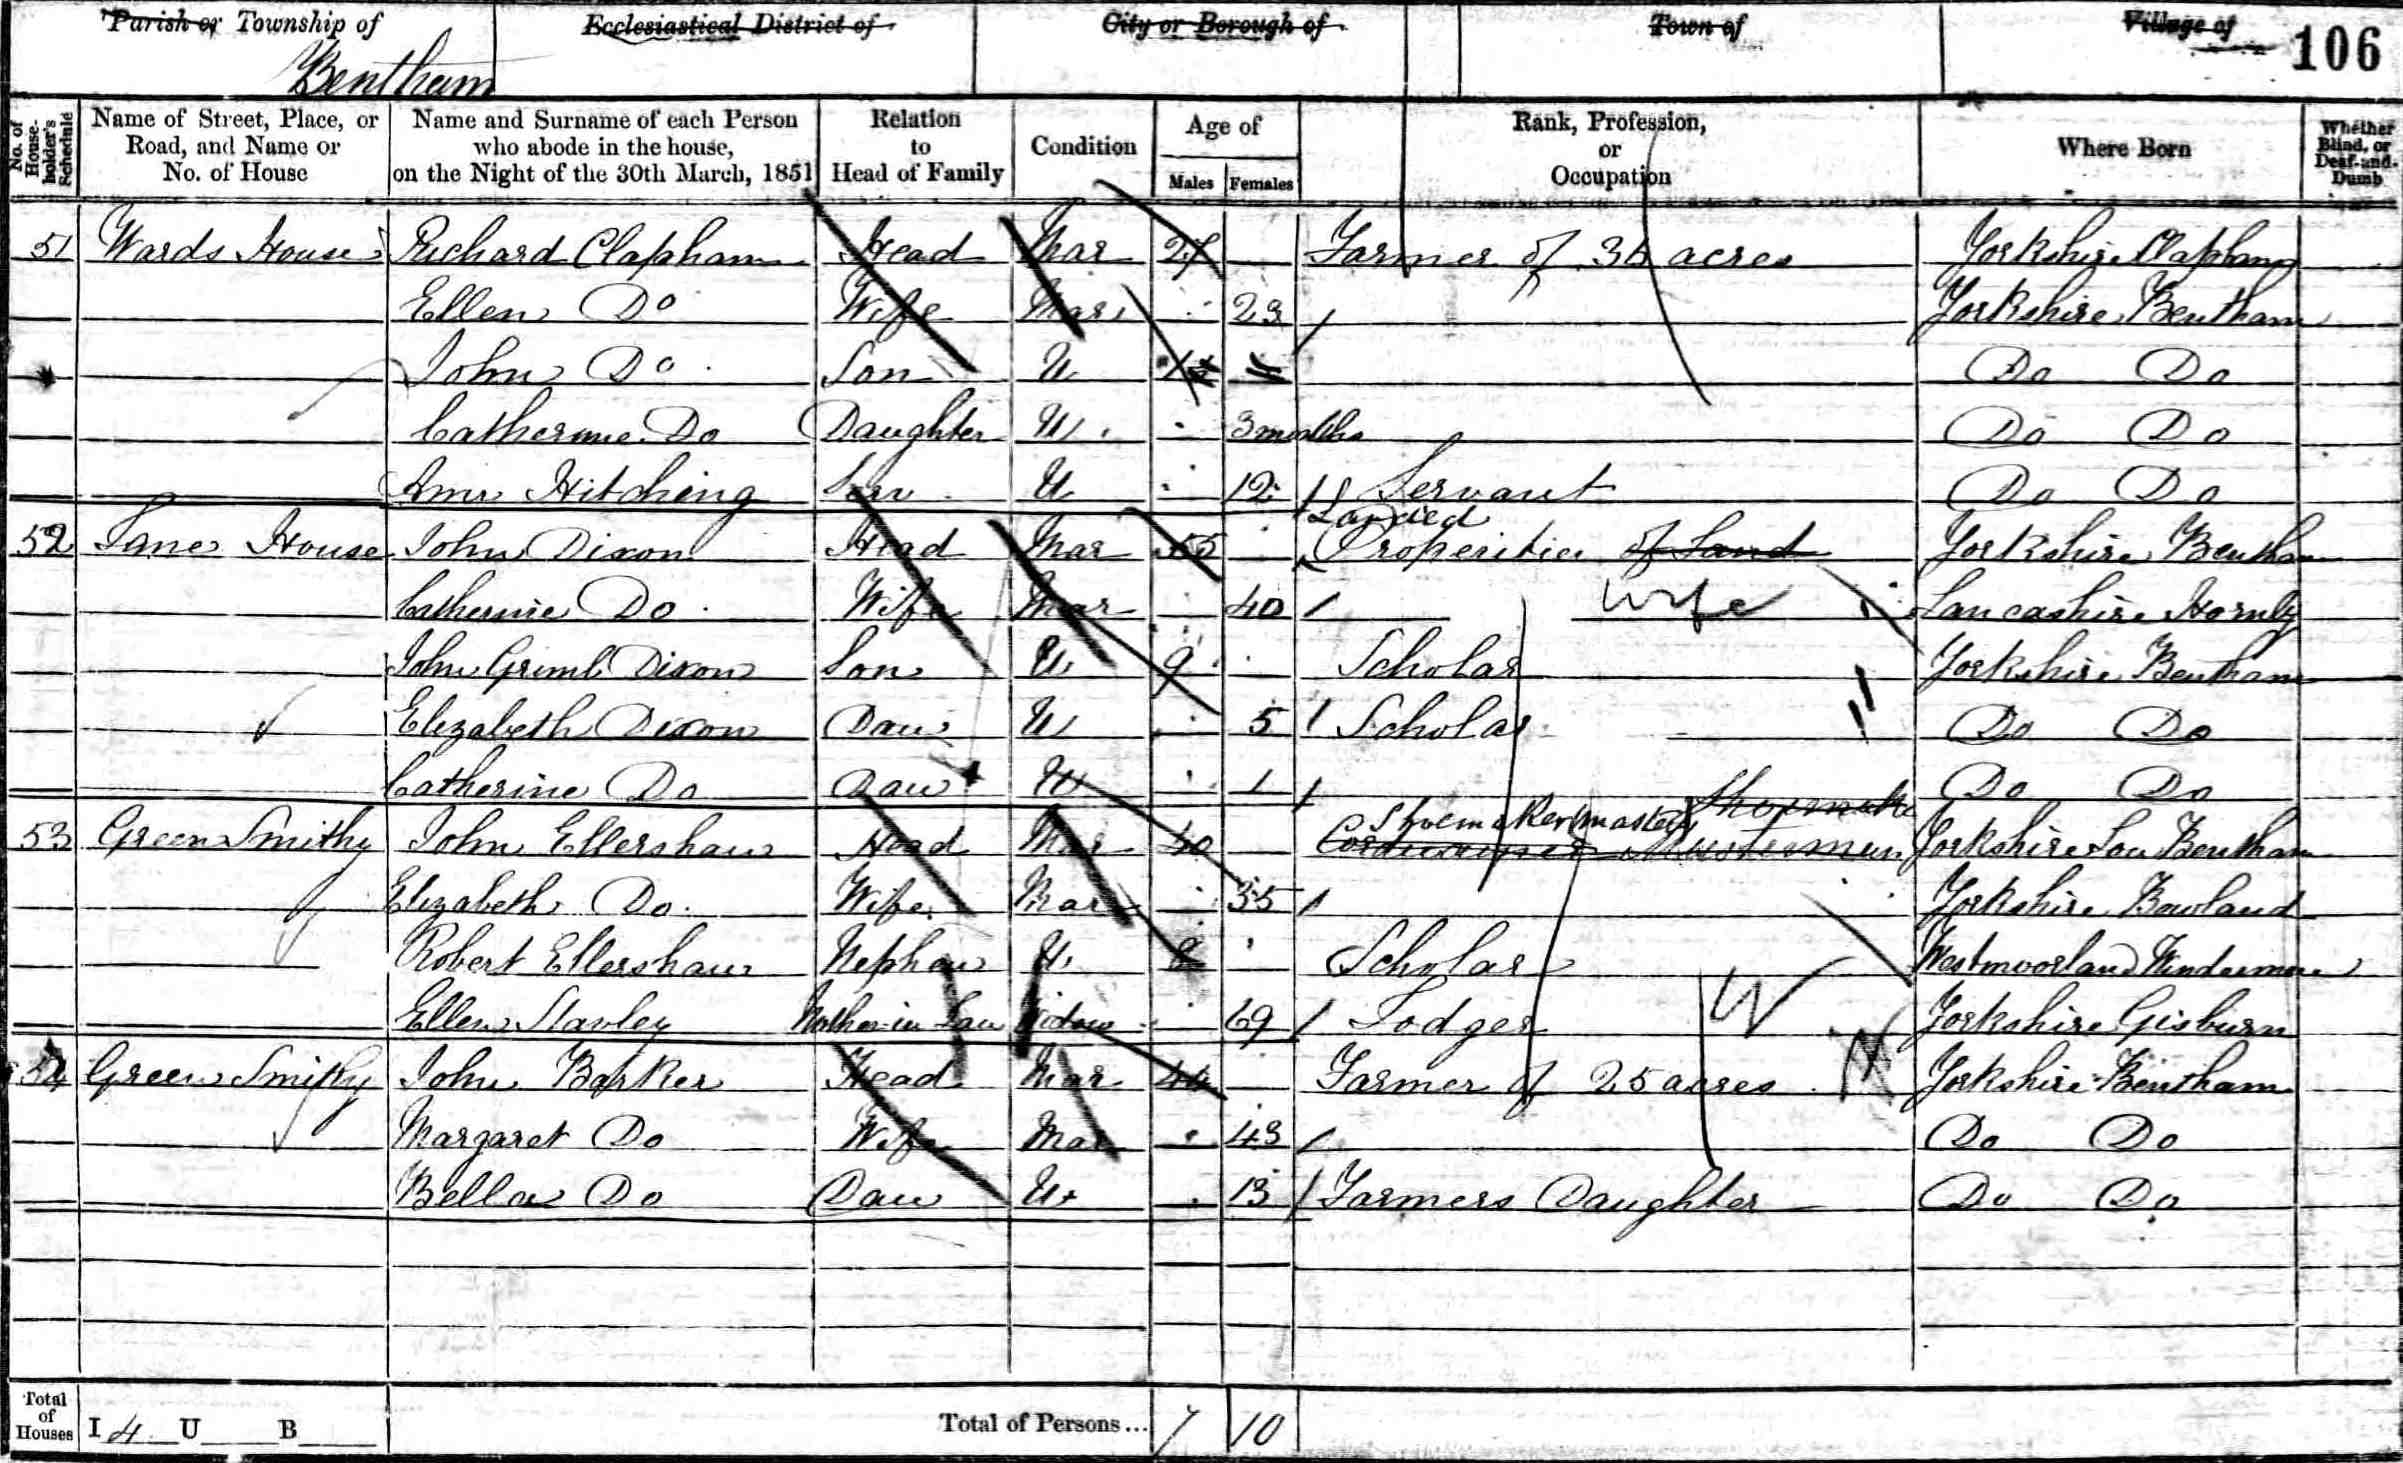 Parish or Township of Ecclesiastical District of City or Borough of Town of Village of 106
Bentham
No. of House-holder's Schedule
Name of Street, Place, or Road, and Name or No. of House
Name and Surname of each Person who abode in the house, on the Night of the 30th March, 1851
Relation to Head of Family
Condition
Age of
Males Females
Rank, Profession, or Occupation
Where Born
Whether Blind, or Deaf-and-Dumb
51 Wards House Richard Clapham Head Mar 27 Farmer of 36 acres Yorkshire Clapham
Ellen Do Wife Mar 23 Yorkshire Bentham
John Do Son U Do Do
Catherine Do Daughter U 3 months Do Do
Ann Hitching Serv U 12 Servant Do Do
Landed
52 Lane House John Dixon Head Mar 55 Proprietor of Land Yorkshire Bentham
Catherine Do Wife Mar 40 Wife Lancashire Hornby
John Grimb Dixon Son U 9 Scholar Yorkshire Bentham
Elizabeth Dixon Daw U 5 Scholar Do Do
Catherine Do Daw U 1 Do Do
Shoemaker master Shoemaker
53 Green Smithy John Ellershaw Head Mar 40 Cordwainer Masterman Yorkshire Low Bentham
Elizabeth Do Wife Mar 35 Yorkshire Bowland
Robert Ellershaw Nephew U 8 Scholar Westmoorland Windermere
Ellen Stavley Mother in Law Widow 69 Lodger W Yorkshire Gisburn
54 Green Smithy John Barker Head Mar 44 Farmer of 25 acres Yorkshire Bentham
Margaret Do Wife Mar 43 Do Do
Bella Do Daw U 13 Farmers Daughter Do Do
Total of Houses I 4 U B Total of Persons... 7 10